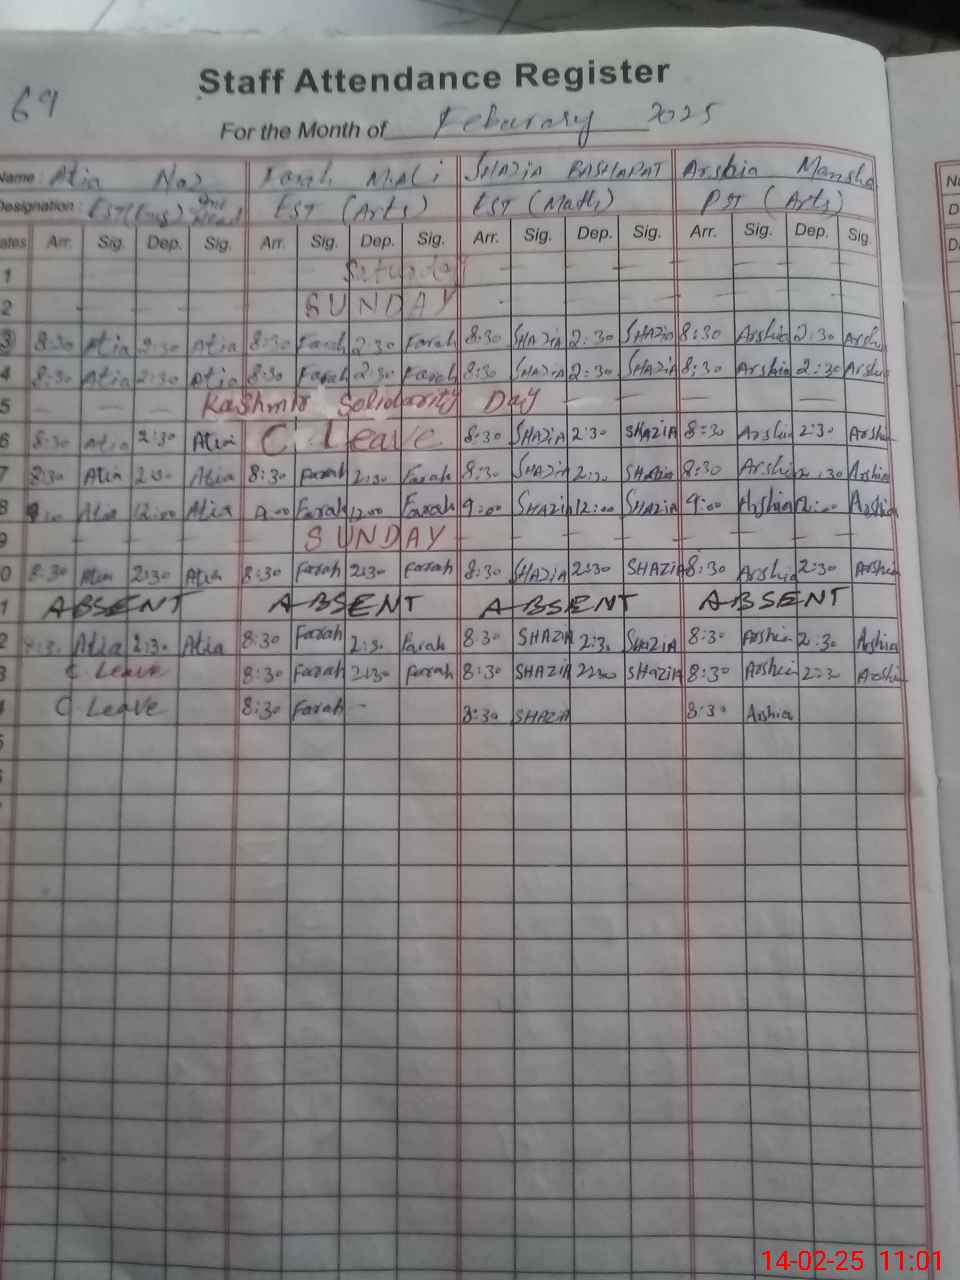 69
Staff Attendance Register
For the Month of Feburary 2025
Name: Atia Naz Farah M.Ali SHAZIA BASHARAT Arshia Mansha
Designation: EST(Eng) EST (Arts) EST (Math) PST (Arts)
ates Arr. Sig. Dep. Sig. Arr. Sig. Dep. Sig. Arr. Sig. Dep. Sig. Arr. Sig. Dep. Sig
1 Saturday
2 SUNDAY
3 8:30 Atia 2:30 Atia 8:30 Farah 2:30 Farah 8:30 SHAZIA 2:30 SHAZIA 8:30 Arshia 2:30 Arshi
4 8:30 Atia 2:30 Atia 8:30 Farah 2:30 Farah 8:30 SHAZIA 2:30 SHAZIA 8:30 Arshia 2:30 Arshi
5 Kashmir Solidarity Day
6 8:30 Atia 2:30 Atia C Leave 8:30 SHAZIA 2:30 SHAZIA 8:30 Arshia 2:30 Arshi
7 8:30 Atia 2:30 Atia 8:30 Farah 2:30 Farah 8:30 SHAZIA 2:30 SHAZIA 8:30 Arshia 2:30 Arshia
8 Atia 12:00 Atia 9:00 Farah 12:00 Farah 9:00 SHAZIA 12:00 SHAZIA 9:00 Arshia 12:00 Arshia
9 SUNDAY
0 8:30 Atia 2:30 Atia 8:30 Farah 2:30 Farah 8:30 SHAZIA 2:30 SHAZIA 8:30 Arshia 2:30 Arshia
1 ABSENT ABSENT ABSENT ABSENT
2 8:30 Atia 2:30 Atia 8:30 Farah 2:30 Farah 8:30 SHAZIA 2:30 SHAZIA 8:30 Arshia 2:30 Arshia
3 C Leave 8:30 Farah 2:30 Farah 8:30 SHAZIA 2:30 SHAZIA 8:30 Arshia 2:30 Arshia
C Leave 8:30 Farah 8:30 SHAZIA 8:30 Arshia
5
6
14-02-25 11:01